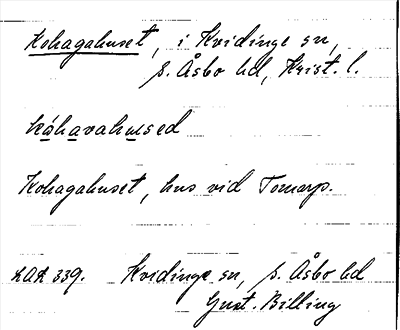 Kohagahuset, i Kvidinge sn,
S. Åsbo hd, Krist. l.
kåhavahused
Kohagahuset, hus vid Tomarp.
LAA 339. Kvidinge sn, S. Åsbo hd
Gust. Billing